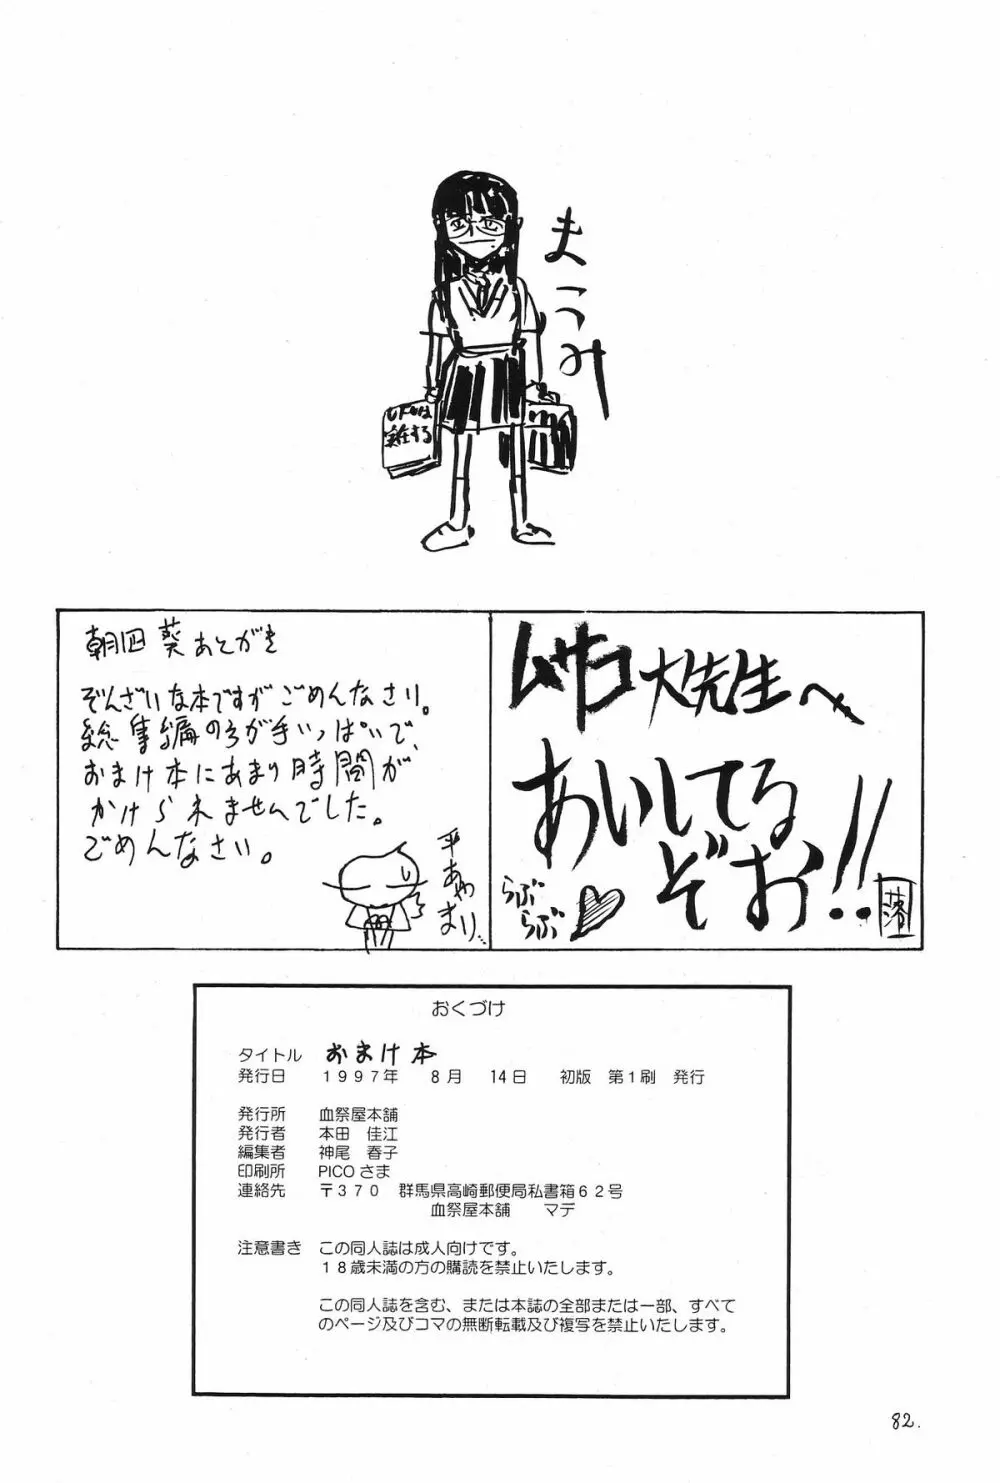 まこみ
UFOは
実在する
朝凪 葵 あとがき
ぞんざいな本ですがごめんなさい。
総集編のろが手いっぱいで、
おまけ本にあまり時間が
かけられませんでした。
ごめんなさい。
平あやまり…
ムサコ大先生へ
あいしてる
ぞお!!
らぶ
らぶ
落
おくづけ
タイトル おまけ本
発行日 1997年 8月 14日 初版 第1刷 発行
発行所 血祭屋本舗
発行者 本田 佳江
編集者 神尾 春子
印刷所 PICOさま
連絡先 〒370 群馬県高崎郵便局私書箱62号
血祭屋本舗 マデ
注意書き この同人誌は成人向けです。
18歳未満の方の購読を禁止いたします。
この同人誌を含む、または本誌の全部または一部、すべて
のページ及びコマの無断転載及び複写を禁止いたします。
82.